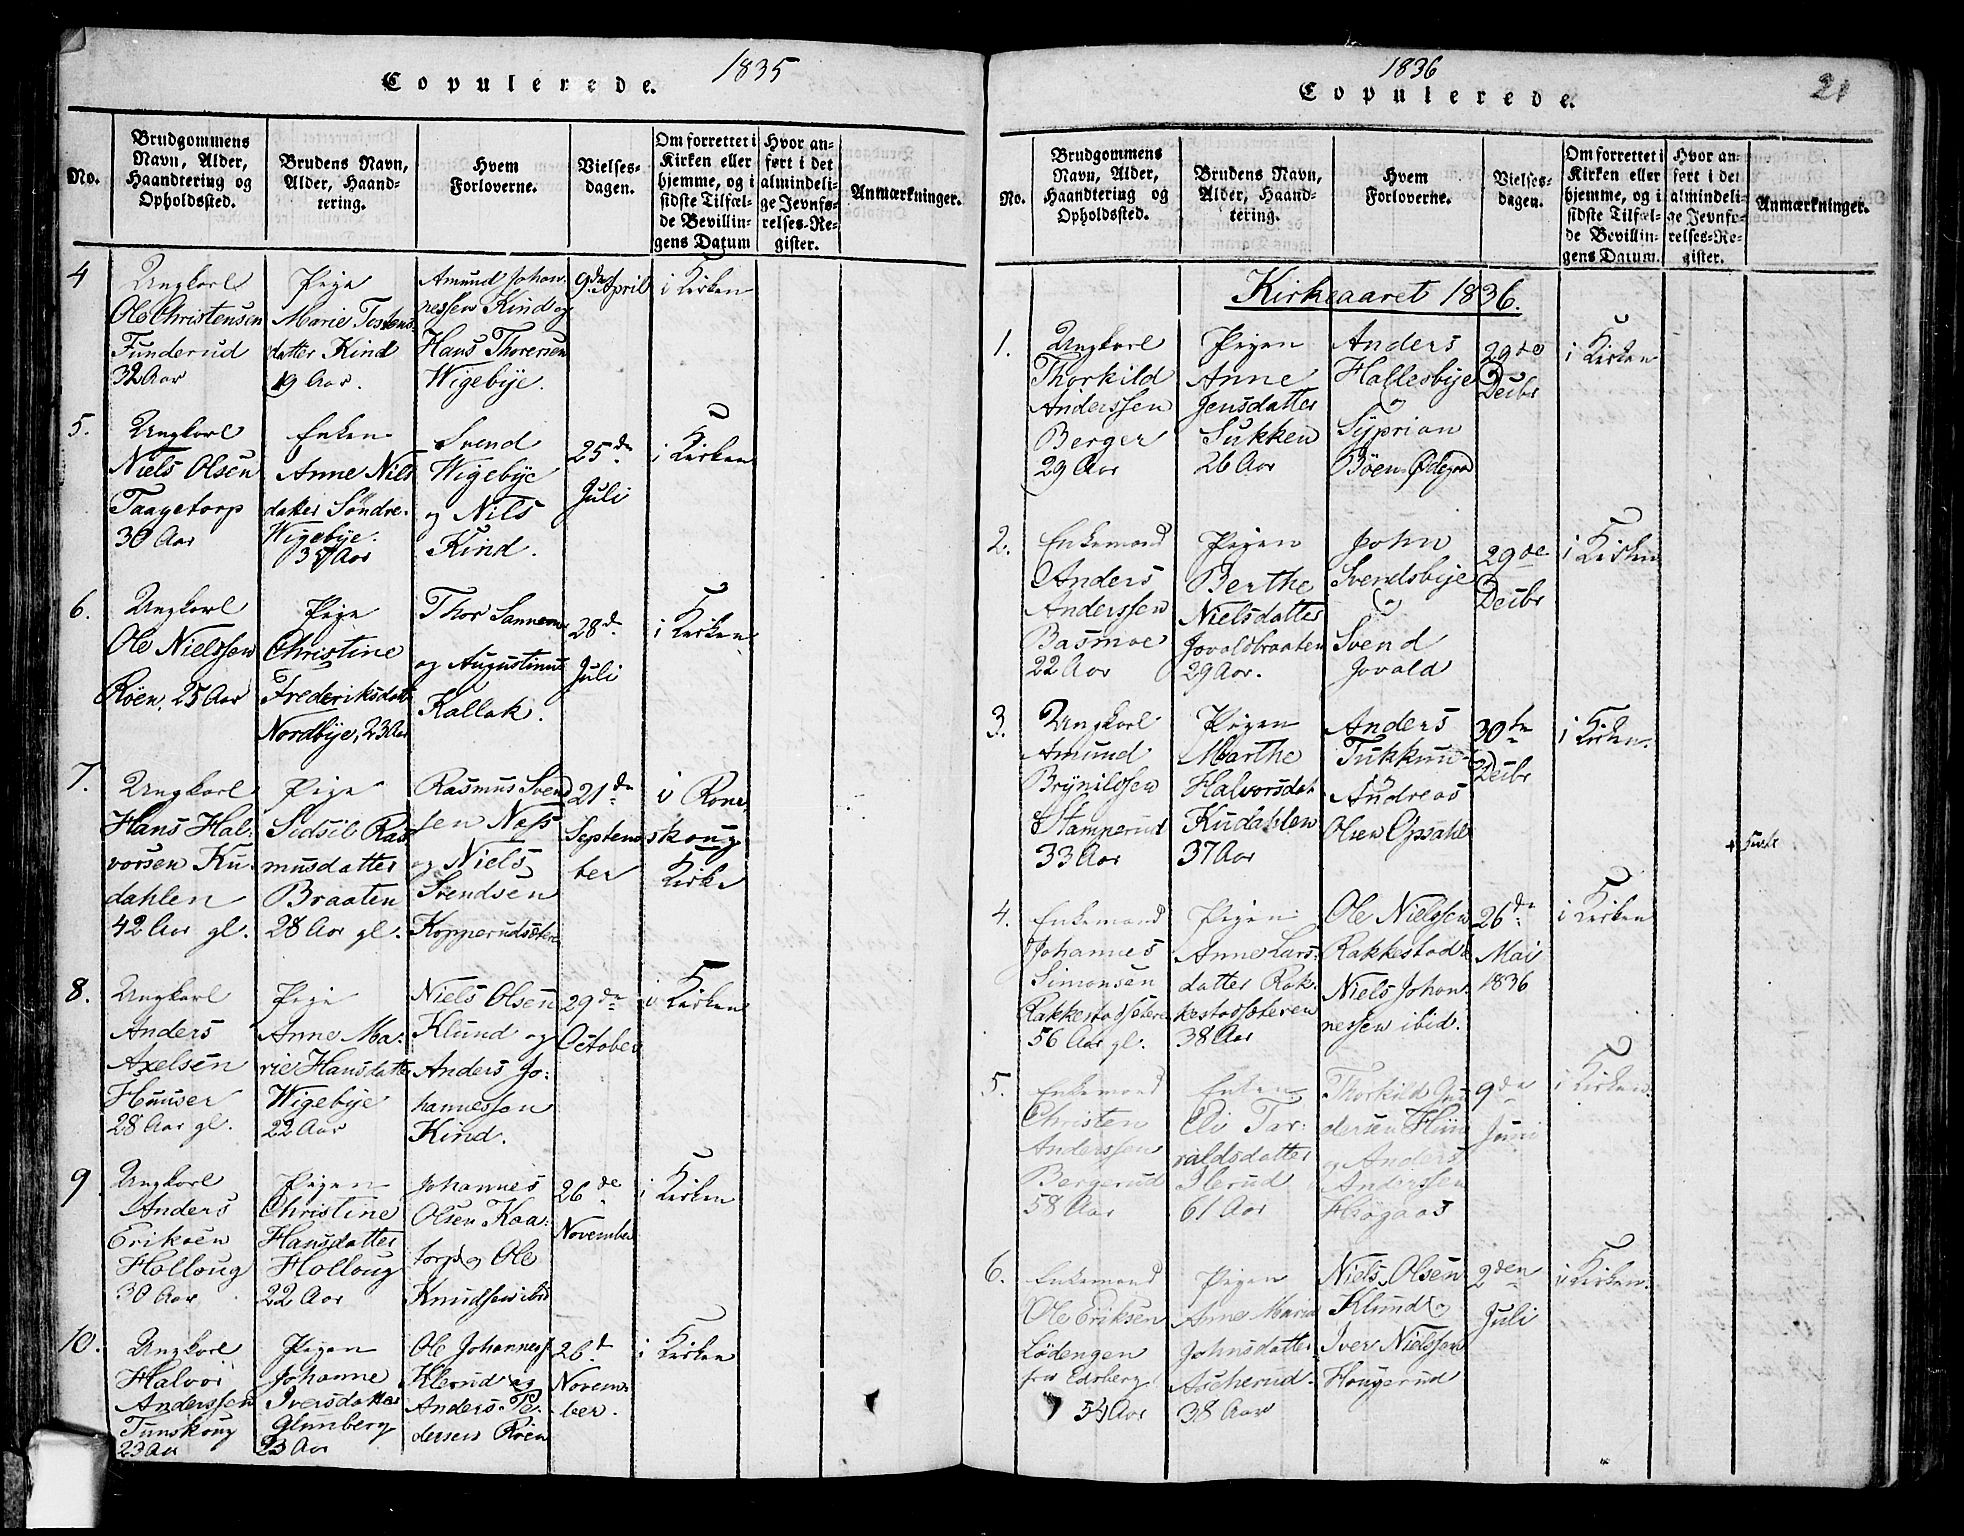 1835
Copulerede.
No.
Brudgommens
Navn, Alder,
Haandtering og
Opholdssted.
Brudens Navn,
Alder, Haand-
tering.
Hvem
Forloverne.
Vielses-
dagen.
Om forrettet i
Kirken eller
hjemme, og i
sidste Tilfæl-
de Bevillin-
gens Datum
Hvor an-
ført i det
almindeli-
ge Jevnfø-
relses-Re-
gister.
Anmærkninger.
4
Ungkarl
Ole Christensen
Funderud
32 Aar
Pige
Marie Tostens
datter Kind
19 Aar.
Amund Johan
nessen Kind og
Hans Thoresen
Wigebye.
9de April
i Kirken
5.
Ungkarl
Niels Olsen
Taagetorp
30 Aar
Enken
Anne Niels
datter Søndre
Wigebye.
35 Aar
Svend
Wigebye
og Nils
Kind.
25de
Juli
i Kirken
6.
Ungkarl
Ole Nielssen
Røen, 25 Aar
Pige
Christine
Frederiksdatt
Nordbye, 23 Aar
Thor Sannem
og Augustinus
Kallak.
28de
Juli
i Kirken
7.
Ungkarl
Hans Hal-
vorsen Ku-
dahlen
42 Aar gl.
Pige
Sidsil Ras
musdatter
Braaten
28 Aar gl.
Rasmus Svend
sen Næss
og Niels
Svendsen
Kopperudsætere
21de
Septem
ber
i Rone
skoug
Kirke
8.
Ungkarl
Anders
Axelsen
Huuser
28 Aar gl.
Pige
Anne Ma-
rie Hansdatter
Wigebye
22 Aar
Niels Olsen
Klund og
Anders Jo-
hannessen
Kind.
29de
October
i Kirken
9.
Ungkarl
Anders
Eriksen
Holloug
30 Aar
Pigen
Christine
Hansdatter
Holloug
22 Aar
Johannes
Olsen Kaa-
torp og Ole
Knudsen ibid
26de
November
i Kirken
10.
Ungkarl
Halvor
Anderssen
Tunskoug
23 Aar
Pigen
Johanne
Iversdatter
Glumberg
23 Aar
Ole Johannes
Klerud og
Anders Pe-
dersen Røen
26de
Novem-
ber.
i Kirken
1836
21
Copulerede.
No.
Brudgommens
Navn, Alder,
Haandtering og
Opholdssted.
Brudens Navn,
Alder, Haand-
tering.
Hvem
Forloverne.
Vielses-
dagen.
Om forrettet i
Kirken eller
hjemme, og i
sidste Tilfæl-
de Bevillin-
gens Datum.
Hvor an-
ført i det
almindeli-
ge Jevnfø-
relses-Re-
gister.
Anmærkninger.
Kirkeaaret 1836.
1.
Ungkarl
Thorkild
Anderssen
Berger
29 Aar
Pigen
Anne
Jensdatter
Sukken
26 Aar
Anders
Hallesbye
og
Syprian
Böen Ødegaard
29de
Decbr
i Kirken
2.
Enkemand
Anders
Anderssen
Basmoe
22 Aar
Pigen
Berthe
Nielsdatter
Jovaldbraaten
29 Aar.
John
Svendsbye
og
Svend
Jovald
29de
Decbr
i Kirken
3.
Ungkarl
Amund
Brynildsen
Stamperud
33 Aar
Pigen
Marthe
Halvorsdat
Kudahlen
37 Aar
Anders
Tukkun
Andreas
Olsen Opsahl
30te
Decbr
i Kirken.
4.
Enkemand
Johannes
Simonsen
Rakkestadsætere
56 Aar gl.
Pigen
Anne Lars-
datter Rak-
kestadsæteren
38 Aar
Ole Nielssen
Rakkestad &
Niels Johan-
nessen ibid.
26de
Mai
1836
i Kirken
5.
Enkemand
Christen
Anderssen
Bergerud
58 Aar
Enken
Eli Tar-
raldsdatter
Ilerud
61 Aar
Thorkild Gun
dersen
og Anders
Anderssen
9de
Juni
i Kirken.
6.
Enkemand
Ole Eriksen
Lödengen
fra Edsberg
54 Aar
Pigen
Anne Maria
Johnsdatter
Ascherud
38 Aar
Niels Olsen
Klund og
Iver Nielssen
Hougerud
2den
Juli
i Kirken.